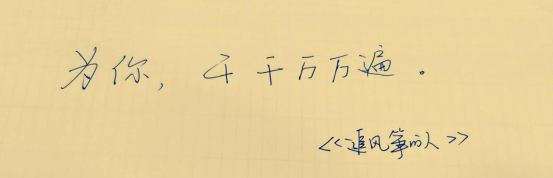 为你，千千万万遍。
<<追风筝的人>>